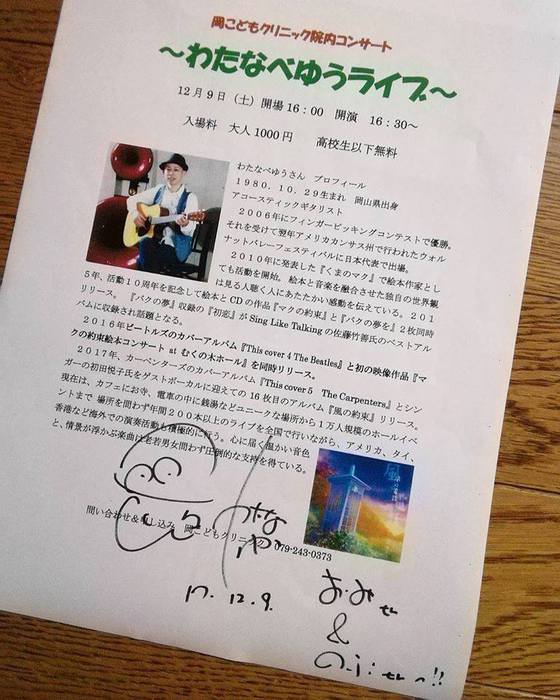 岡こどもクリニック院内コンサート
～わたなべゆうライブ～
12月9日（土）開場16：00　開演　16：30～
入場料　大人1000円　　高校生以下無料
わたなべゆうさん　プロフィール
1980．10．29生まれ　岡山県出身
アコースティックギタリスト
2006年にフィンガーピッキングコンテストで優勝。
それを受けて翌年アメリカカンサス州で行われたウォル
ナットバレーフェスティバルに日本代表で出場。
2010年に発表した『くまのマク』で絵本作家とし
ても活動を開始。絵本と音楽を融合させた独自の世界観
は見る人聴く人にあたたかい感動を伝えている。201
5年、活動10周年を記念して絵本とCDの作品『マクの約束』と『バクの夢を』2枚同時
リリース。『バクの夢』収録の『初恋』がSing Like Talkingの佐藤竹善氏のベストアル
バムに収録され話題となる。
2016年ビートルズのカバーアルバム『This cover 4 The Beatles』と初の映像作品『マ
クの約束絵本コンサート at むくの木ホール』を同時リリース。
2017年、カーペンターズのカバーアルバム『This cover 5　The Carpenters』とシン
ガーの初田悦子氏をゲストボーカルに迎えての16枚目のアルバム『風の約束』リリース。
現在は、カフェにお寺、電車の中に銭湯などユニークな場所から1万人規模のホールイベ
ントまで 場所を問わず年間200本以上のライブを全国で行いながら、アメリカ、タイ、
香港など海外での演奏活動も積極的に行う。心に届く温かい音色
と、情景が浮かぶ楽曲は老若男女問わず圧倒的な支持を得ている。
問い合わせ＆申し込み　岡こどもクリニック　079-243-0373
17. 12. 9.
&